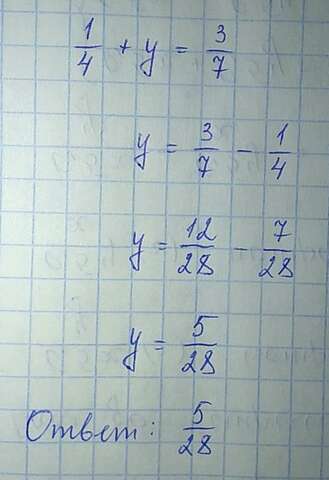 1/4 + y = 3/7
y = 3/7 - 1/4
y = 12/28 - 7/28
y = 5/28
Ответ: 5/28